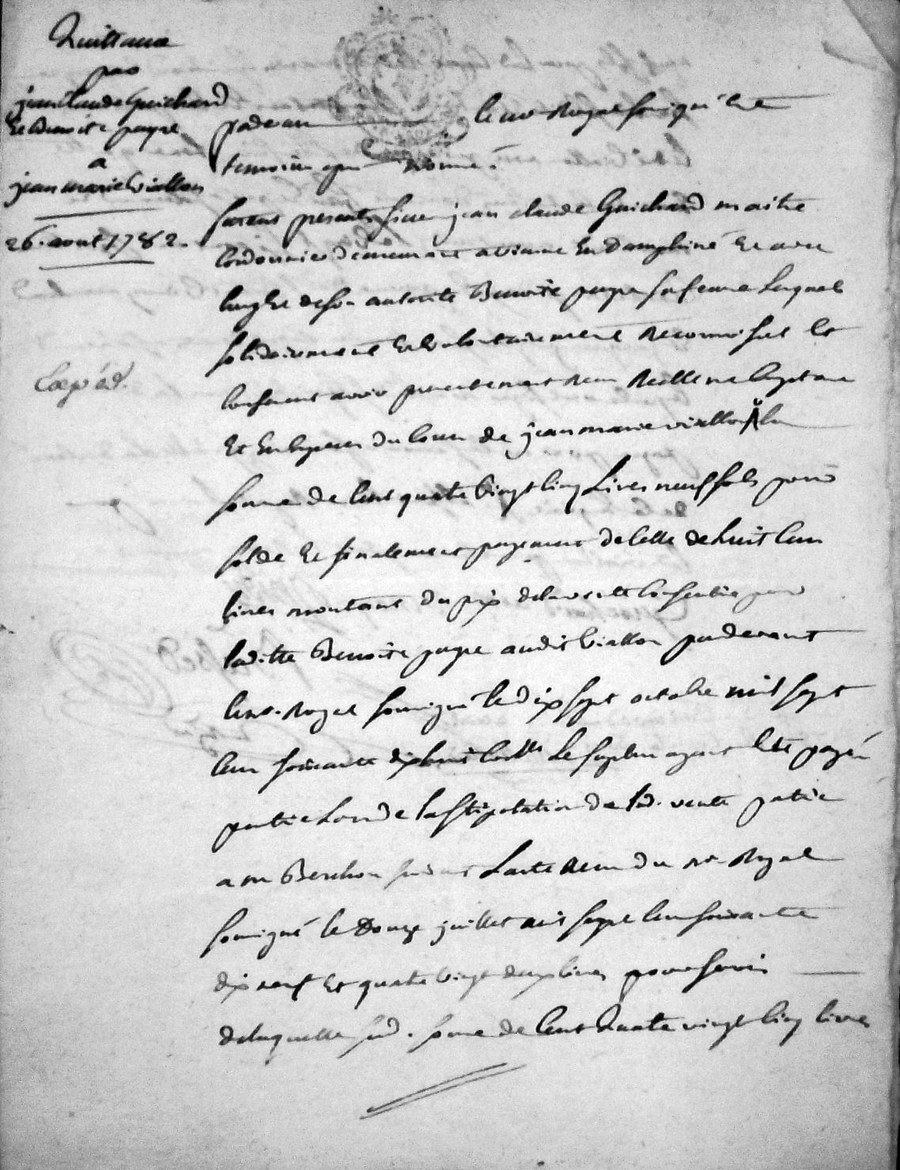 Quittance
par
jean Claude Guichard
et Benoite payre
a
jean marie viallon
26. aout 1782.
Expéd.
pardevant le no.re Royal soussigné Et
temoins apres Nommés.
furent presents sieur jean claude Guichard maitre
Cordonnier demeurant a vienne En Dauphiné Et avec
luy Et de son autorité Benoite payre sa femme Lesquels
solidairement Et volontairement Reconnoissent Et
Confessent avoir presentement Reçu Reellement
Et En Especes Du Cours de jean marie viallon la
somme de Cent quatre vingt Cinq Livres neuf sols pour
solde Et finalement payement de Celle de huit Cens
livres montant du prix de la vente Consentie par
laditte Benoite payre audit viallon pardevant
le no.re Royal soussigné le dix sept octobre mil sept
Cens soixante dix huit Le surplus ayant Eté payé
partie Lors de la stipulation de lad. vente partie
a m Berchon suivant L'acte Reçu du no.re Royal
soussigné le Douze juillet mil sept Cens soixante
dix neuf Et quatre vingt deux livres
de laquelle susd. somme de Cent Quatre vingt Cinq livres